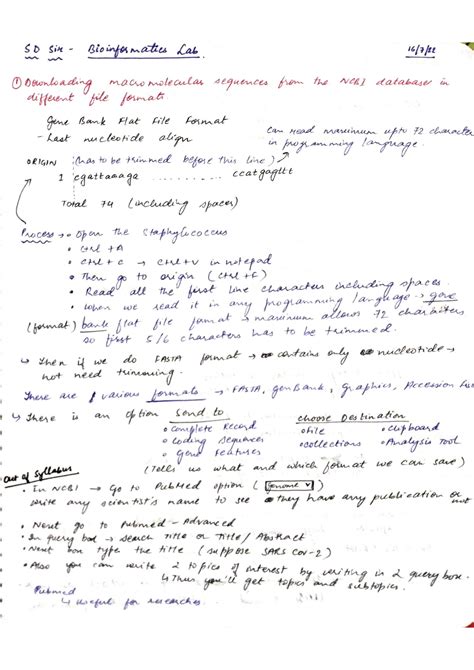 SD Sir - Bioinformatics Lab. 16/7/22
① Downloading macromolecular sequences from the NCBI databases in
different file formats
Gene Bank Flat File Format
- Last nucleotide align
can read maximum upto 72 character
in programming language.
ORIGIN (has to be trimmed before this line)
1 cgattaaaga .......... ccatgagttt
Total 74 (including spaces)
Process → • Open the Staphylococcus
• ctrl + A
• ctrl + C → ctrl + V in notepad
• Then go to origin (ctrl + F)
• Read all the first line characters including spaces.
• When we read it in any programming language → gene
(format) bank flat file format → maximum allows 72 characters
so first 5/6 characters has to be trimmed.
↳ Then if we do FASTA format → contains only nucleotide →
not need trimming.
There are various formats → FASTA, genBank, Graphics, Accession
↳ There is an option Send to choose Destination
• Complete Record • File • Clipboard
• Coding Sequences • Collections • Analysis Tool
• Gene Features
out of syllabus
(Tells us what and which format we can save)
• In NCBI → Go to PubMed option (Genome ∨)
write any scientist's name to see they have any publication or not
• Next go to Pubmed - Advanced
• In query box → search Title or Title/Abstract
• Next box type the title (suppose SARS Cov-2)
• Also you can write 2 topics of interest by writing in 2 query box.
↳ Thus you'll get topics and subtopics.
Pubmed
↳ useful for researches.